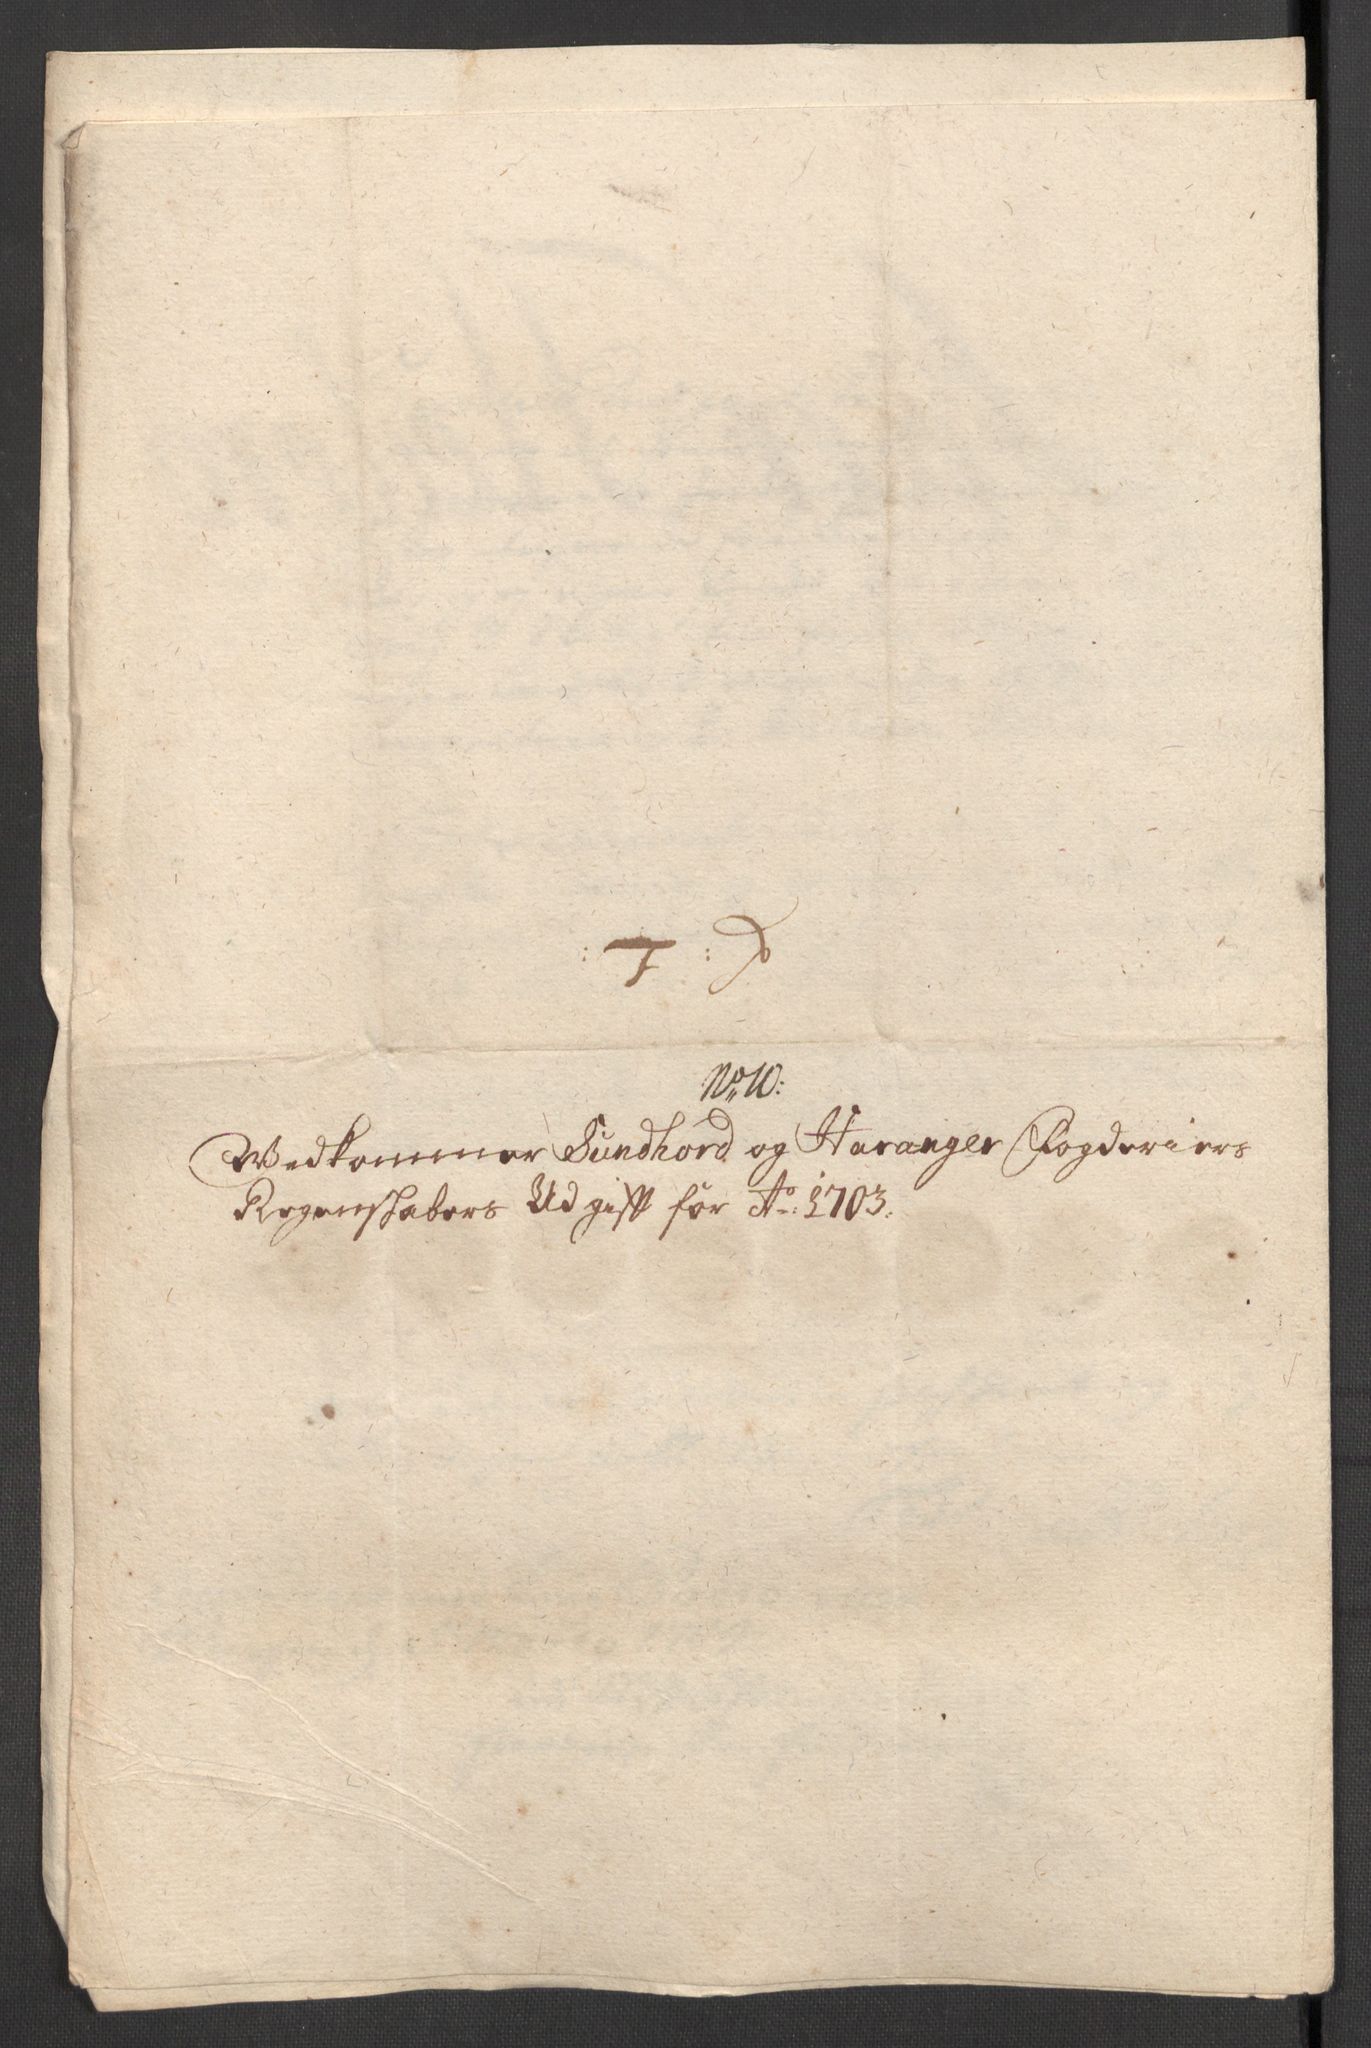 : 7 :
No 10:
Wedkommer Sundhord og Haranger Fogderiers
Regenskabers Udgifft for Ao: 1703.